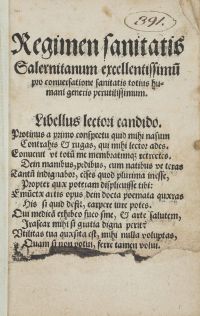 391.
Regimen sanitatis
Salernitanum excellentissimũ
pro conuersatione sanitatis totius hu
mani generis perutilissimum.
Libellus lectori candido.
Protinus a primo conspectu quid mihi nasum
Contrahis & rugas, qui mihi lector ades.
Conuenit vt totũ me membratimq; retractes.
Dein manibus, pedibus, cum natibus vt teras
Tantũ indignabor, cistes quod plurima inesse,
Propter quæ poteram displicuisse tibi:
opus dein docta poemata quæras
His si quid desit, carpere iure potes.
Qui medicã exhibeo suco sine, & arte salutem,
Irascar mihi si gratia digna perit?
Vtilitas tua quæsita est, mihi nulla voluptas,
Quam si non potui, ferre tamen volui.